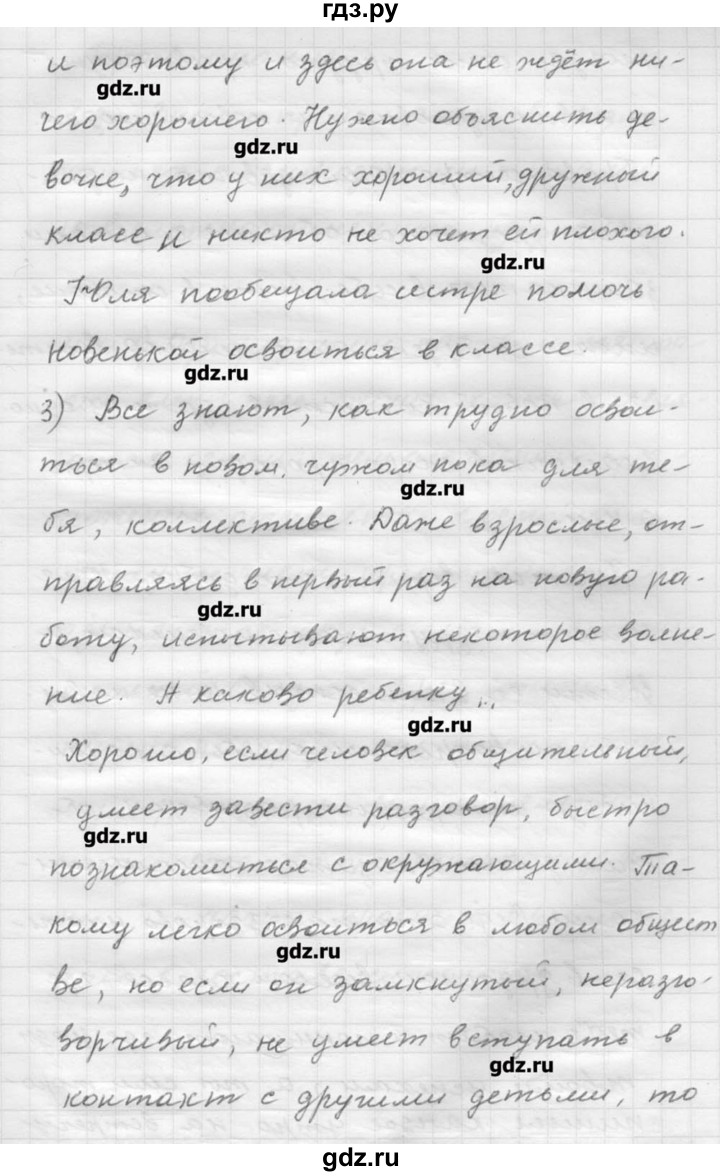 гдз.ру
и поэтому и здесь она не ждёт ни-
gdz.ru
чего хорошего. Нужно объяснить де-
gdz.ru
вочке, что у них хороший, дружный
класс и никто не хочет ей плохого.
gdz.ru
Юля пообещала сестре помочь
новенькой освоиться в классе.
gdz.ru
3) Все знают, как трудно освои-
ться в новом, чужом пока для те-
gdz.ru
бя, коллективе. Даже взрослые, от-
правляясь в первый раз на новую ра-
gdz.ru
боту, испытывают некоторое волне-
ние. А каково ребенку...
gdz.ru
Хорошо, если человек общительный,
умеет завести разговор, быстро
gdz.ru
познакомиться с окружающими. Та-
кому легко освоиться в любом общест
gdz.ru
ве, но если он замкнутый, неразго-
ворчивый, не умеет вступать в
gdz.ru
контакт с другими детьми, то
gdz.ru